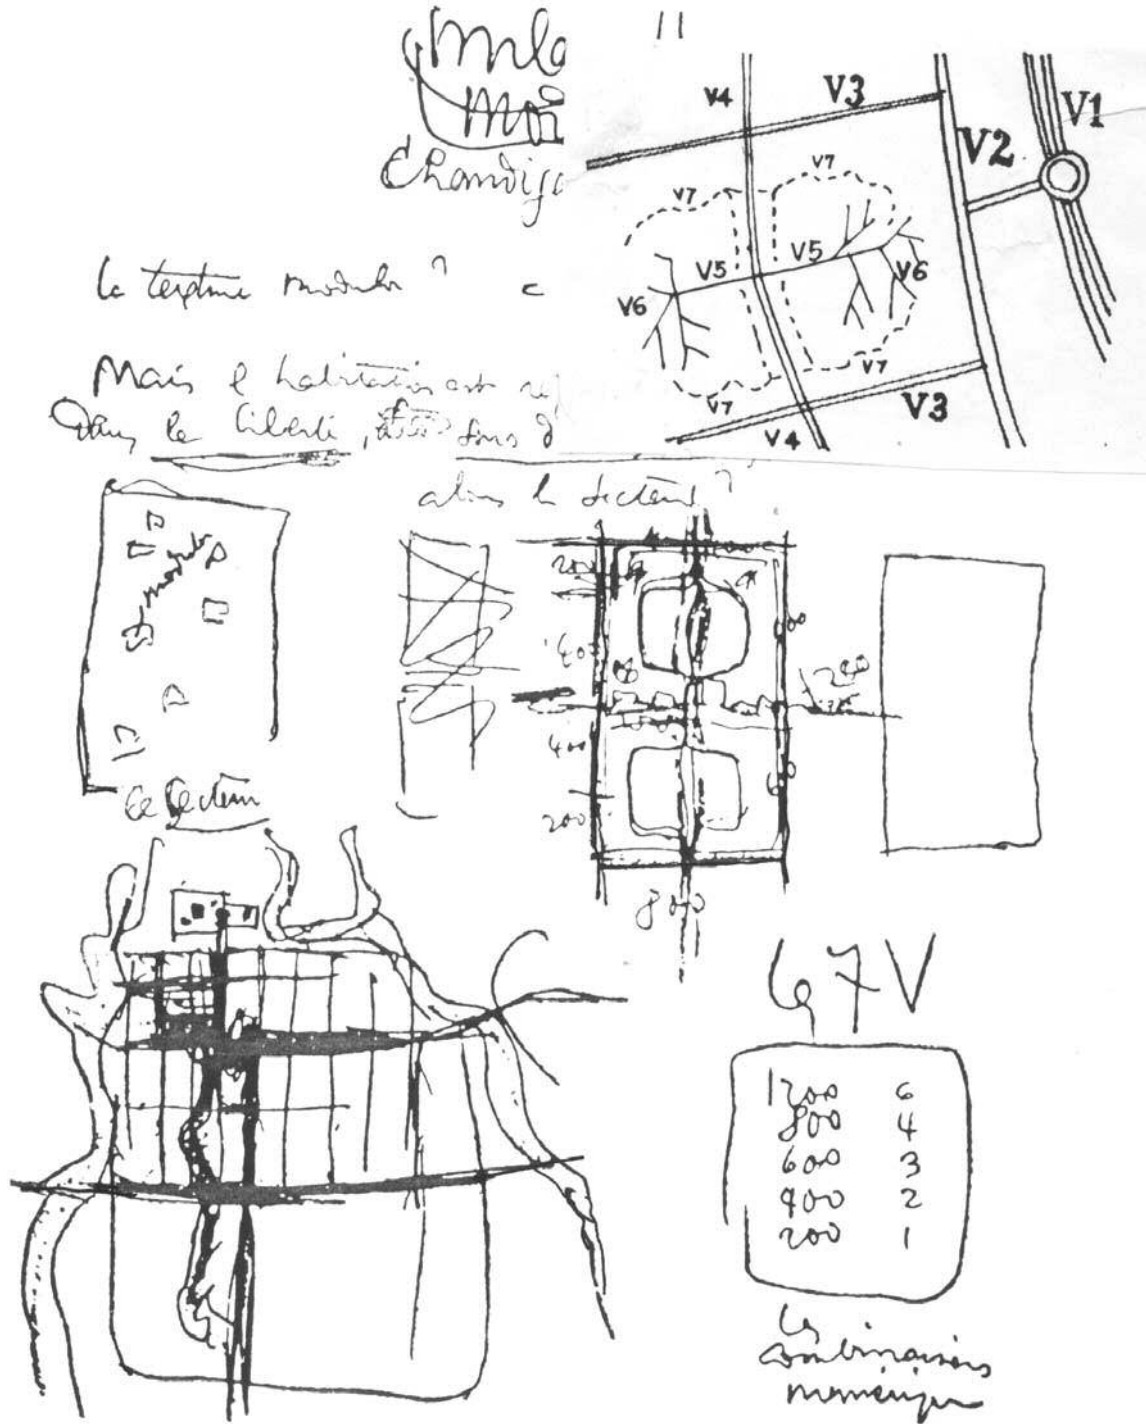 11
Chandiga
V4 V3 V1
V2
V7 V7
V5 V5 V6
V6
V7
V7 V3
V4
la texture modulor ? c
Mais l habitation est
Dans la liberté, sous d
alors le secteur ?
modulor
200
400 600
200
400
600
200
Le secteur
800
Les 7 V
1200 6
800 4
600 3
400 2
200 1
Les
combinaisons
numériques